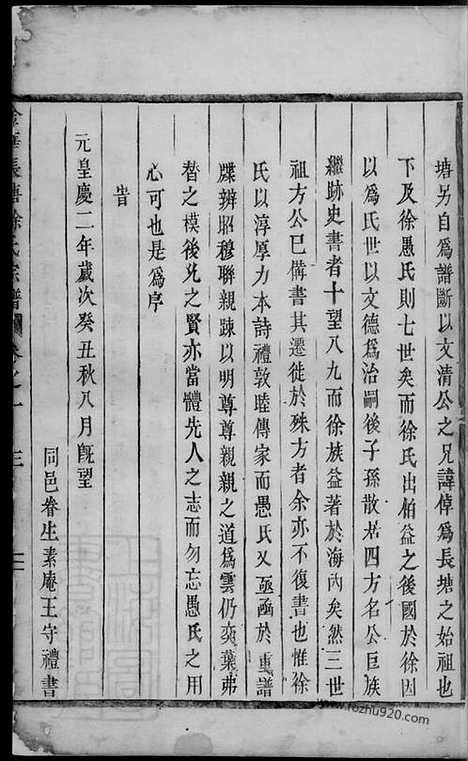 塘另自爲譜斷以文清公之兄諱倬爲長塘之始祖也
下及徐愚氏則七世矣而徐氏出伯益之後國於徐因
以爲氏世以文德爲治嗣後子孫散居四方名公巨族
繼跡史書者十望八九而徐族益著於海內矣然三世
祖方公已偹書其遷徙於殊方者余亦不復書也惟徐
氏以淳厚力本詩禮敦睦傳家而愚氏又亟亟於重譜
牒辨昭穆聯親踈以明尊尊親親之道爲雲仍奕葉弗
替之模後兄之賢亦當體先人之志而勿忘愚氏之用
心可也是爲序
旹
元皇慶二年歲次癸丑秋八月旣望
同邑眷生素庵王守禮書
長塘徐氏宗譜 卷之一 三
www.fozhu920.com